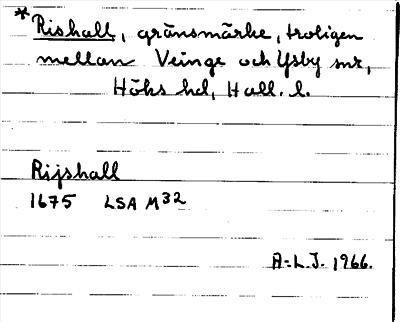 * Rishall, gränsmärke, troligen
mellan Veinge och Ysby snr,
Höks hd, Hall. l.
Rijshall
1675 LSA M32
A-L.J. 1966.